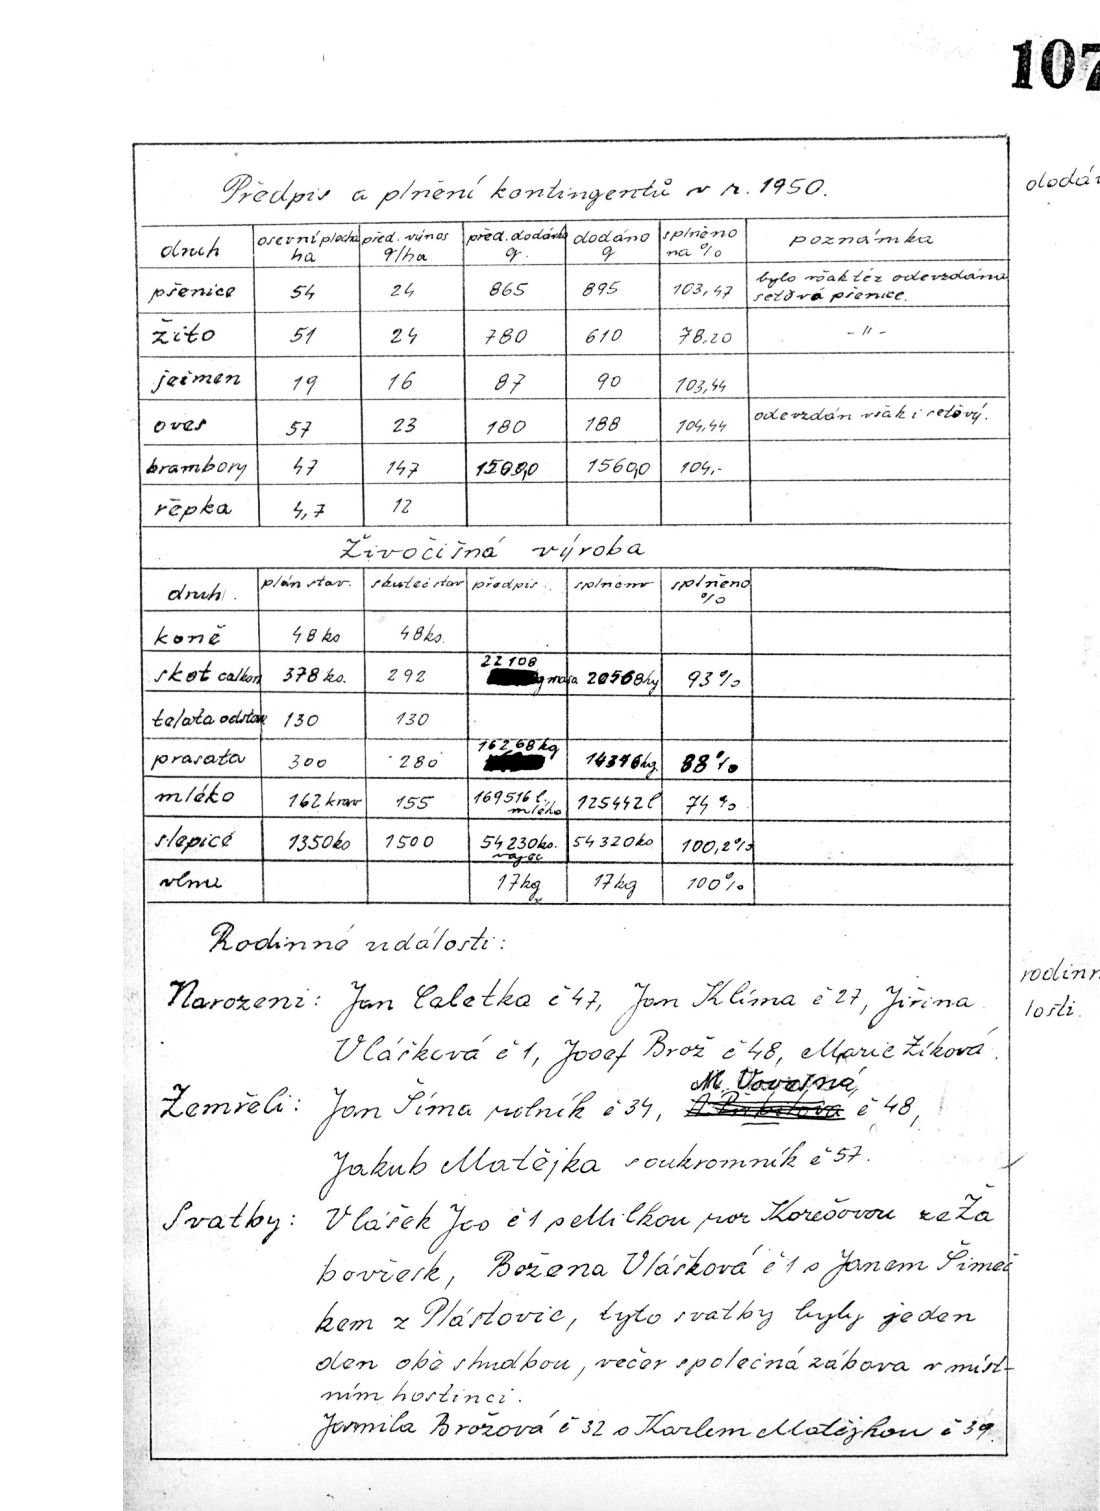 107
Předpis a plnění kontingentů v r. 1950.
dodáv
druh osevní plocha ha před. výnos q/ha před. dodávka q. dodáno q splněno na % poznámka
pšenice 54 24 865 895 103,47 bylo však též odevzdána setbová pšenice.
žito 51 24 780 610 78,20 -"-
ječmen 19 16 87 90 103,44
oves 57 23 180 188 104,44 odevzdán však i setbový.
brambory 47 147 1500,0 1560,0 104,-
řepka 4,7 12
Živočišná výroba
druh. plán stav. skuteč stav předpis. splněno splněno %
koně 48 ks 48 ks.
skot celkem 378 ks. 292 22108 masa 20568 kg 93 %
telata odstav 130 130
prasata 300 280 16268 kg 14376 kg 88 %
mléko 162 krav 155 169516 l. mléka 125442 l 74 %
slepice 1350 ks 1500 54230 ks. vajec 54320 ks 100,2 %
vlna 17 kg 17 kg 100 %
Rodinné události:
rodinn
Narozeni: Jan Caletka č 47, Jan Klíma č 27, Jiřina
losti.
Vlášková č 1, Josef Brož č 48, Marie Zíková.
Zemřeli: Jan Šíma rolník č 34, M. č 48,
Jakub Matějka soukromník č 57.
Svatby: Vlášek Jos č 1 s Milkou roz Korešovou ze Ža
bovřesk, Božena Vlášková č 1 s Janem Šimeč
kem z Plástovic, tyto svatby byly jeden
den obě s hudbou, večer společná zábava v míst-
ním hostinci.
Jarmila Brožová č 32 s Karlem Matějkou č 39.